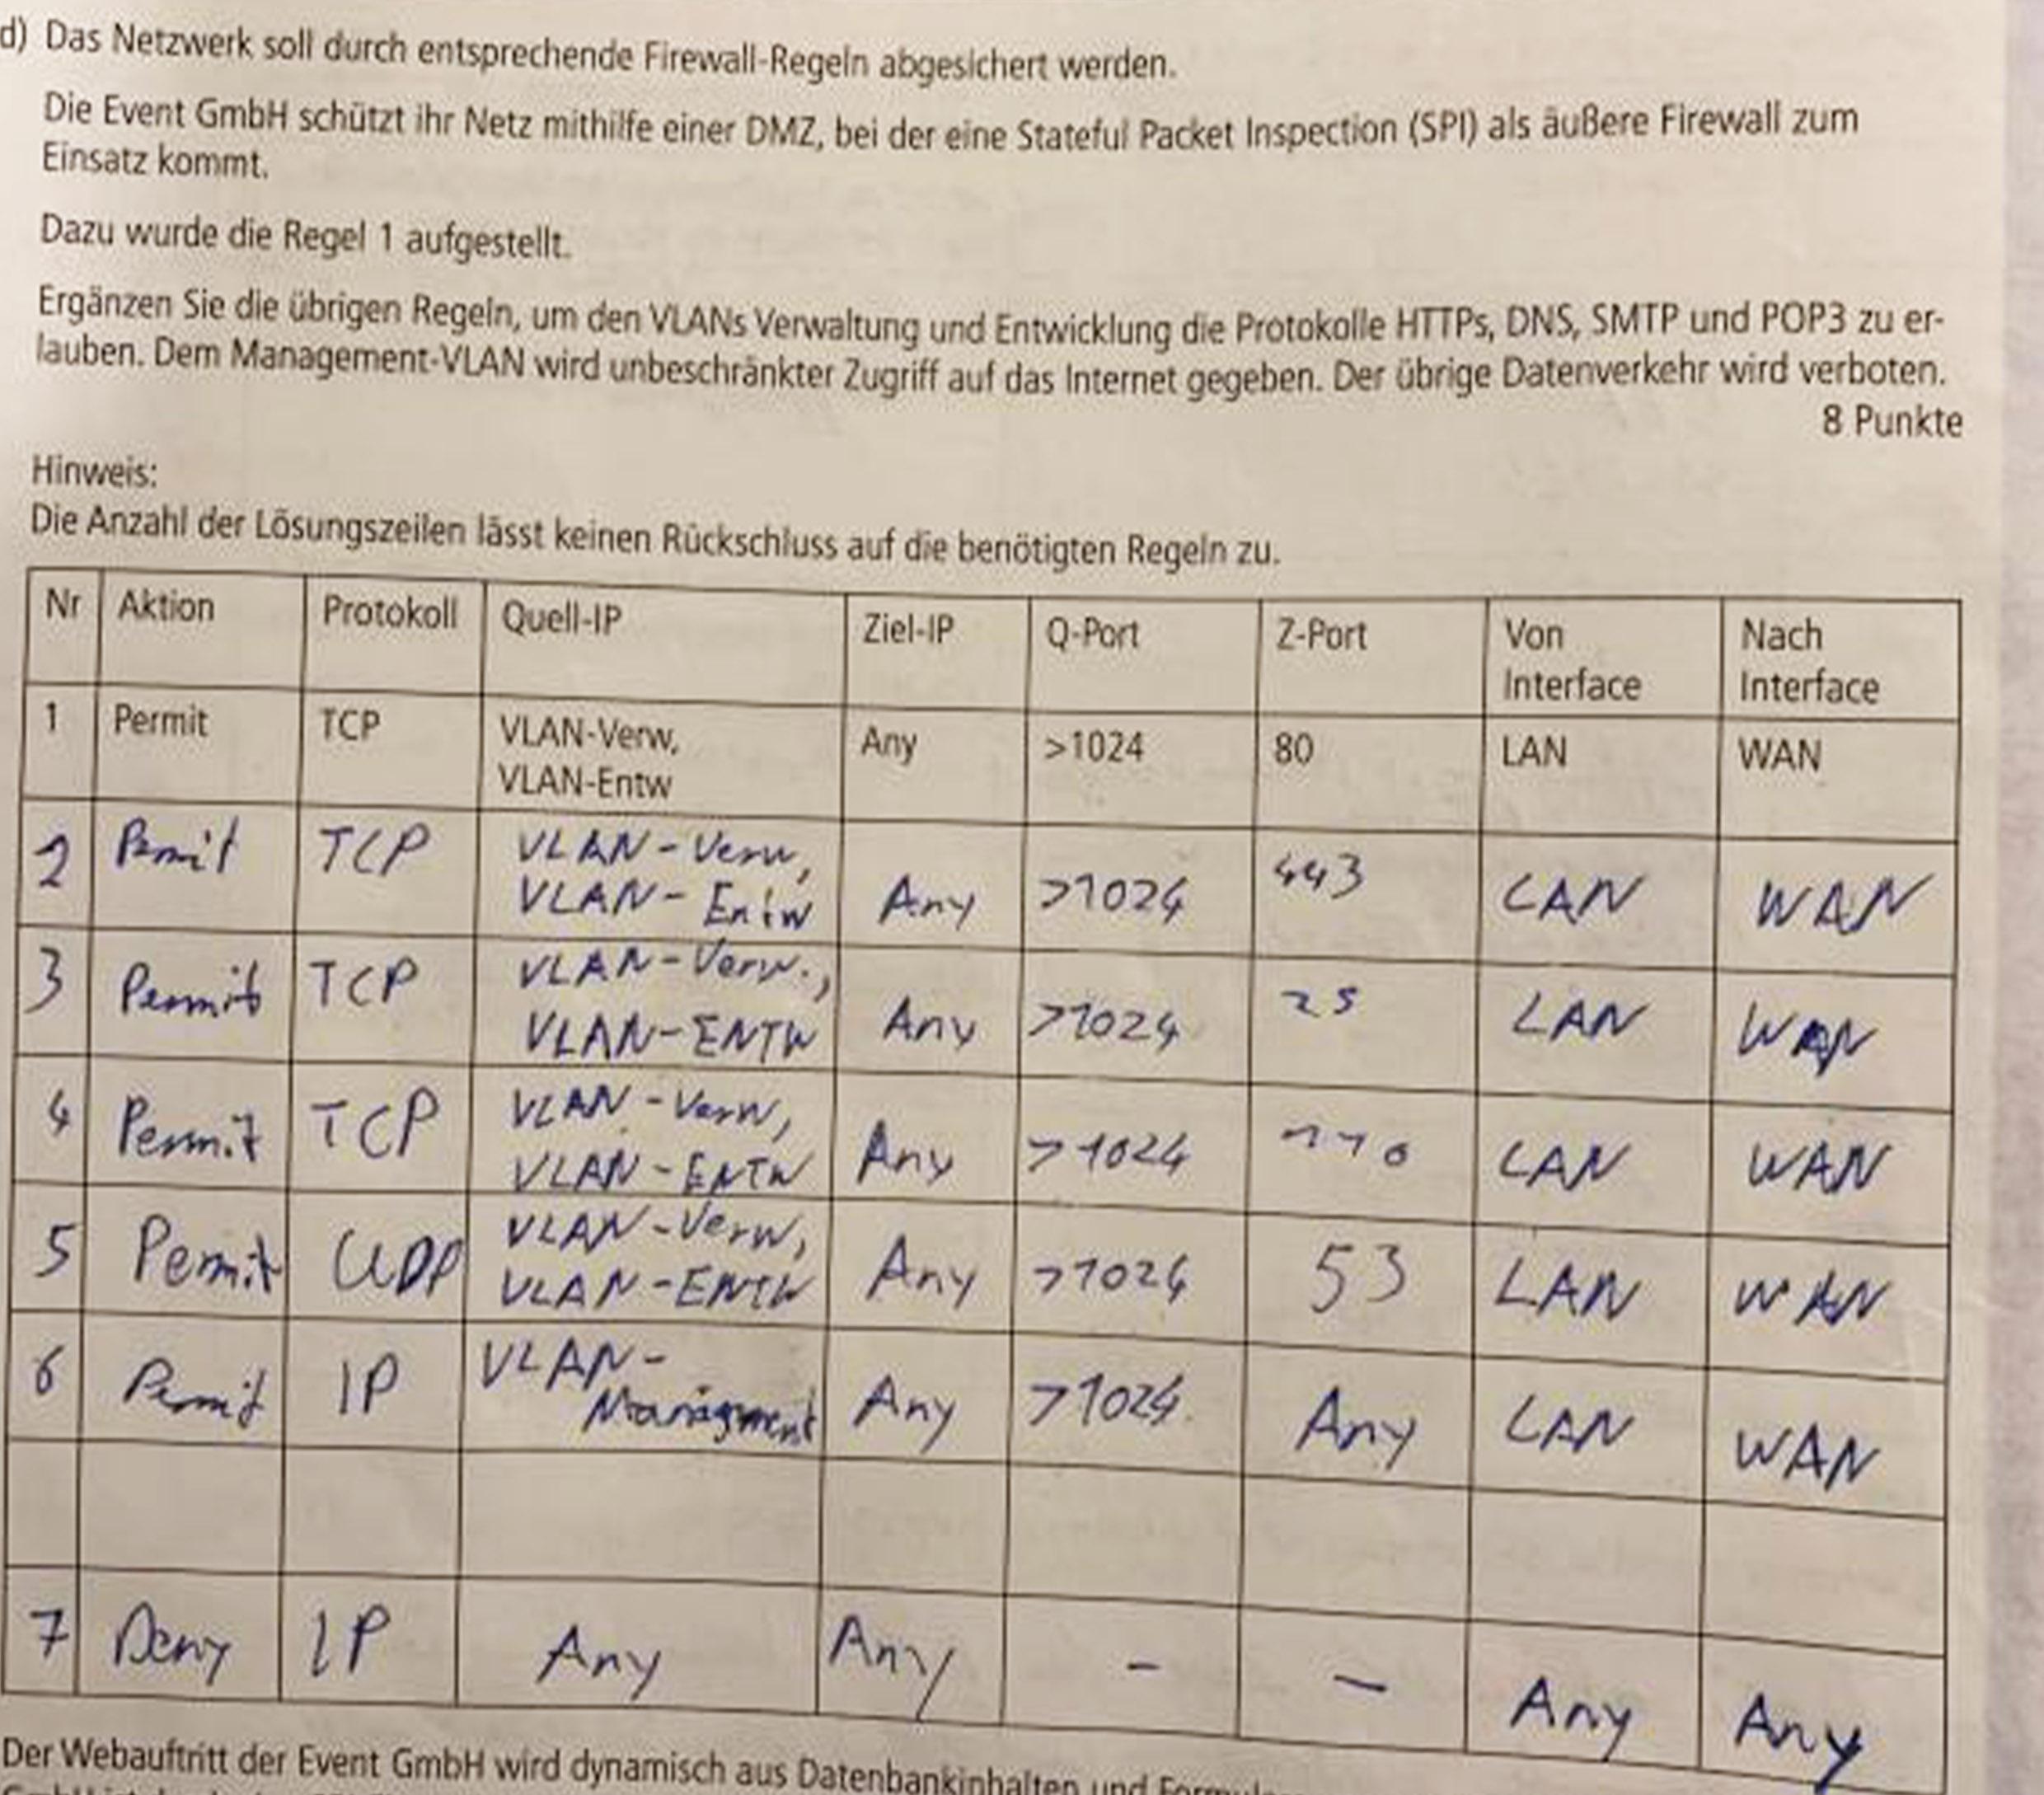 d) Das Netzwerk soll durch entsprechende Firewall-Regeln abgesichert werden.
Die Event GmbH schützt ihr Netz mithilfe einer DMZ, bei der eine Stateful Packet Inspection (SPI) als äußere Firewall zum
Einsatz kommt.
Dazu wurde die Regel 1 aufgestellt.
Ergänzen Sie die übrigen Regeln, um den VLANs Verwaltung und Entwicklung die Protokolle HTTPs, DNS, SMTP und POP3 zu er-
lauben. Dem Management-VLAN wird unbeschränkter Zugriff auf das Internet gegeben. Der übrige Datenverkehr wird verboten.
8 Punkte
Hinweis:
Die Anzahl der Lösungszeilen lässt keinen Rückschluss auf die benötigten Regeln zu.
Nr Aktion Protokoll Quell-IP Ziel-IP Q-Port Z-Port Von Interface Nach Interface
1 Permit TCP VLAN-Verw, VLAN-Entw Any >1024 80 LAN WAN
2 Permit TCP VLAN-Verw, VLAN-Entw Any >1024 443 LAN WAN
3 Permit TCP VLAN-Verw., VLAN-ENTW Any >1024 25 LAN WAN
4 Permit TCP VLAN-Verw, VLAN-ENTW Any >1024 110 LAN WAN
5 Permit UDP VLAN-Verw, VLAN-ENTW Any >1024 53 LAN WAN
6 Permit IP VLAN-Managment Any >1024 Any LAN WAN
7 Deny IP Any Any - - Any Any
Der Webauftritt der Event GmbH wird dynamisch aus Datenbankinhalten und